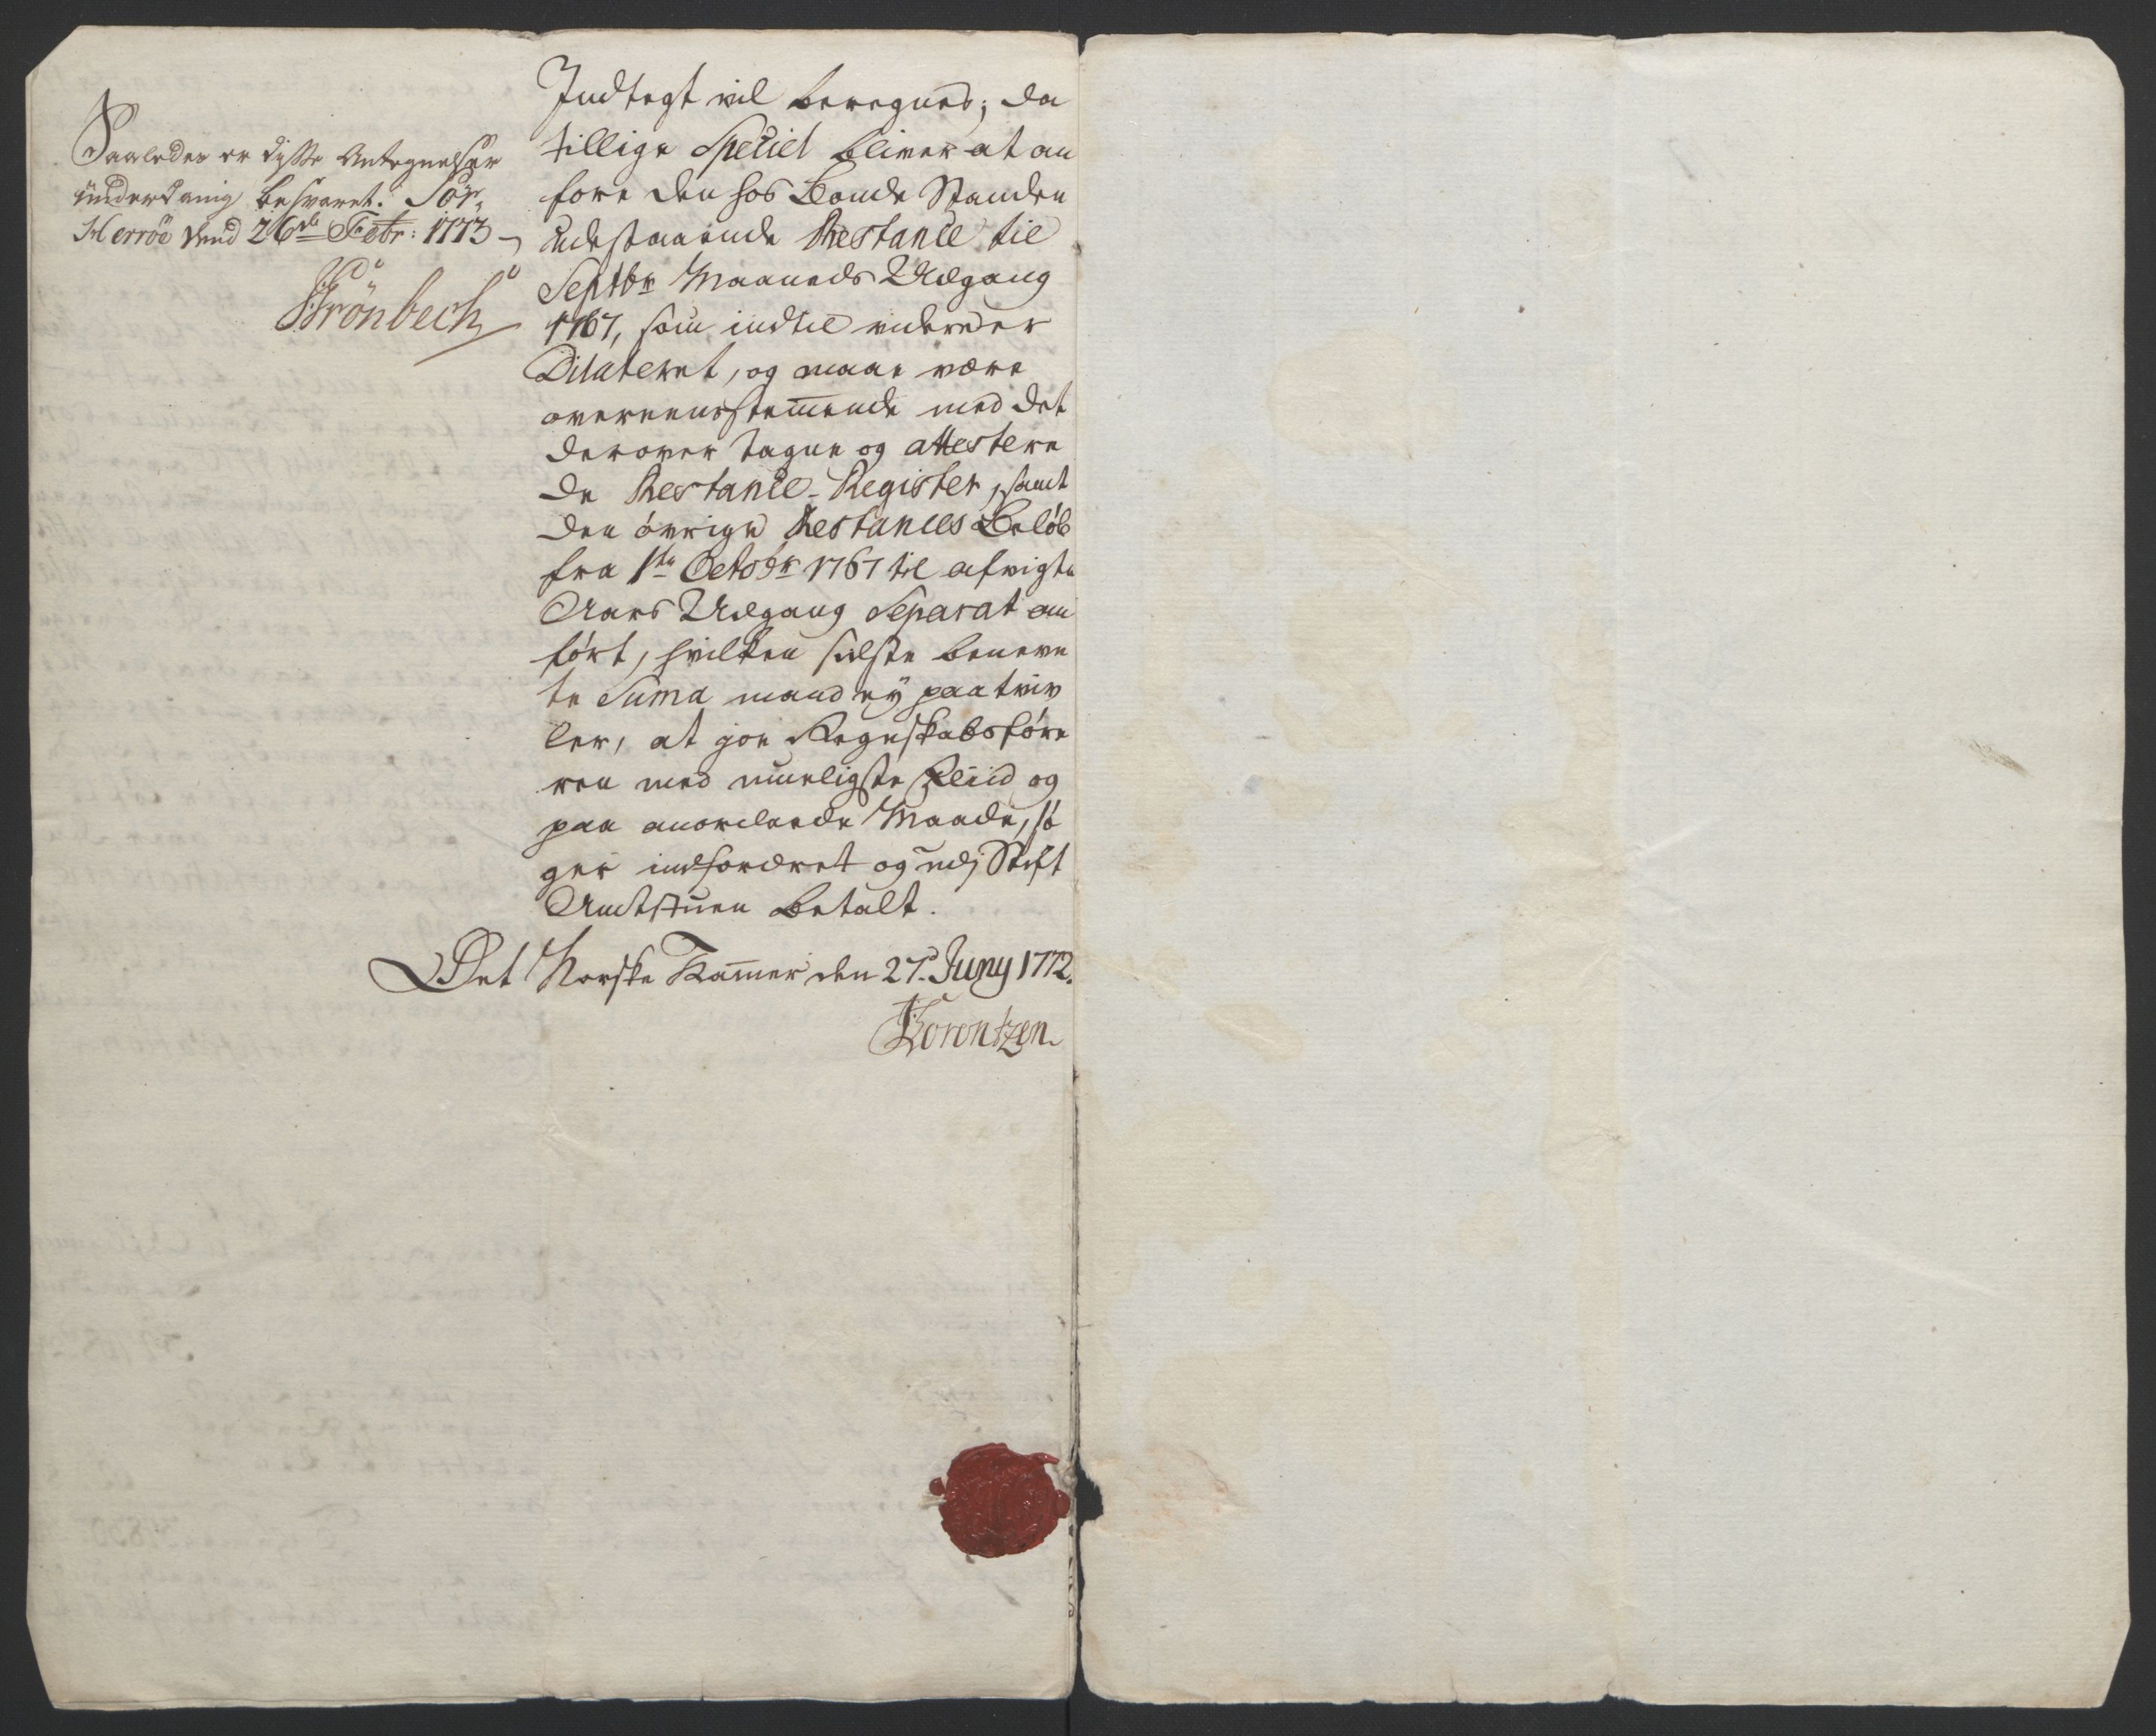 Saaledes er disse Antegnelser
underdanig besvaret. Sör-
Herröe dend 26de Febr: 1773
Grönbech
Indtegt vil beregnes; da
tillige Speciel bliver at an
føre den hos Bonde Standen
udestaaende Restance til
Septbr Maaneds Udgang
1767, som indtil videre er
Dilateret, og maae være
overeensstemmende med det
derover tagne og attestere
de Restance-Register, samt
den øvrige Restances Beløb
fra 1te Octobr 1767 til afvigte
Aars Udgang Separat an
ført, hvilken sidste benevn
te Suma mand ey paatviv
ler, at jo Regnskabsføre
ren med mueligste Fliid og
paa anordnede Maade, sø
ger indfordret og udj Stift
Amtstuen betalt.
Det Norske Kammer den 27d Juny 1772.
Lorentzen.